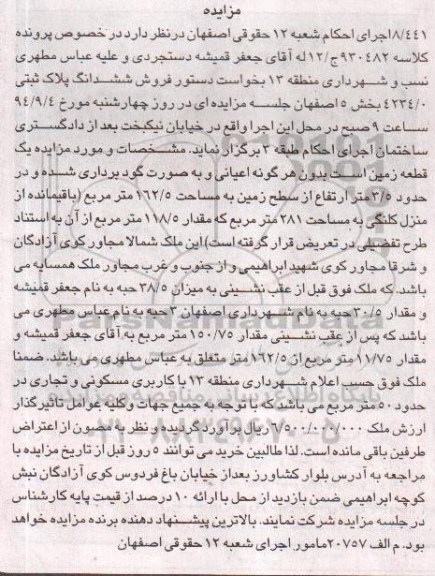 مزایده
۸/۴۴۱اجرای احکام شعبه ۱۲ حقوقی اصفهان درنظر دارد در خصوص پرونده
کلاسه ۹۳۰۴۸۲ج/۱۲ له آقای جعفر قمیشه دستجردی و علیه عباس مطهری
نسب و شهرداری منطقه ۱۳ بخواست دستور فروش ششدانگ پلاک ثبتی
۴۲۳۴/۰ بخش ۵ اصفهان جلسه مزایده ای در روز چهارشنبه مورخ ۹۴/۹/۴
ساعت ۹ صبح در محل این اجرا واقع در خیابان نیکبخت بعد از دادگستری
ساختمان اجرای احکام طبقه ۳ برگزار نماید. مشخصات و مورد مزایده یک
قطعه زمین است بدون هر گونه اعیانی و به صورت گود برداری شده و در
حدود ۳/۵ متر ارتفاع از سطح زمین به مساحت ۱۶۲/۵ متر مربع (باقیمانده از
منزل کلنگی به مساحت ۲۸۱ متر مربع که مقدار ۱۱۸/۵ متر مربع از آن به استناد
طرح تفضیلی در تعریض قرار گرفته است) این ملک شمالا مجاور کوی آزادگان
و شرقا مجاور کوی شهید ابراهیمی و از جنوب و غرب مجاور ملک همسایه می
باشد. که ملک فوق قبل از عقب نشینی به میزان ۳۸/۵ حبه به نام جعفر قمیشه
و مقدار ۳۰/۵ حبه به نام شهرداری اصفهان ۳ حبه به نام عباس مطهری می
باشد که پس از عقب نشینی مقدار ۱۵۰/۷۵ متر مربع به آقای جعفر قمیشه و
مقدار ۱۱/۷۵ متر مربع از ۱۶۲/۵ متر متعلق به عباس مطهری می باشد. ضمنا
ملک فوق حسب اعلام شهرداری منطقه ۱۳ با کاربری مسکونی و تجاری در
حدود ۵۰ متر مربع می باشد که با توجه به جمیع جهات وکلیه عوامل تاثیر گذار
ارزش ملک ۶/۵۰۰/۰۰۰/۰۰۰ ریال برآورد گردیده و نظر به مصون از اعتراض
طرفین باقی مانده است. لذا طالبین خرید می توانند ۵ روز قبل از تاریخ مزایده با
مراجعه به آدرس بلوار کشاورز بعداز خیابان باغ فردوس کوی آزادگان نبش
کوچه ابراهیمی ضمن بازدید از محل با ارائه ۱۰ درصد از قیمت پایه کارشناس
در جلسه مزایده شرکت نمایند. بالاترین پیشنهاد دهنده برنده مزایده خواهد
بود. م الف ۲۰۷۵۷ مامور اجرای شعبه ۱۲ حقوقی اصفهان